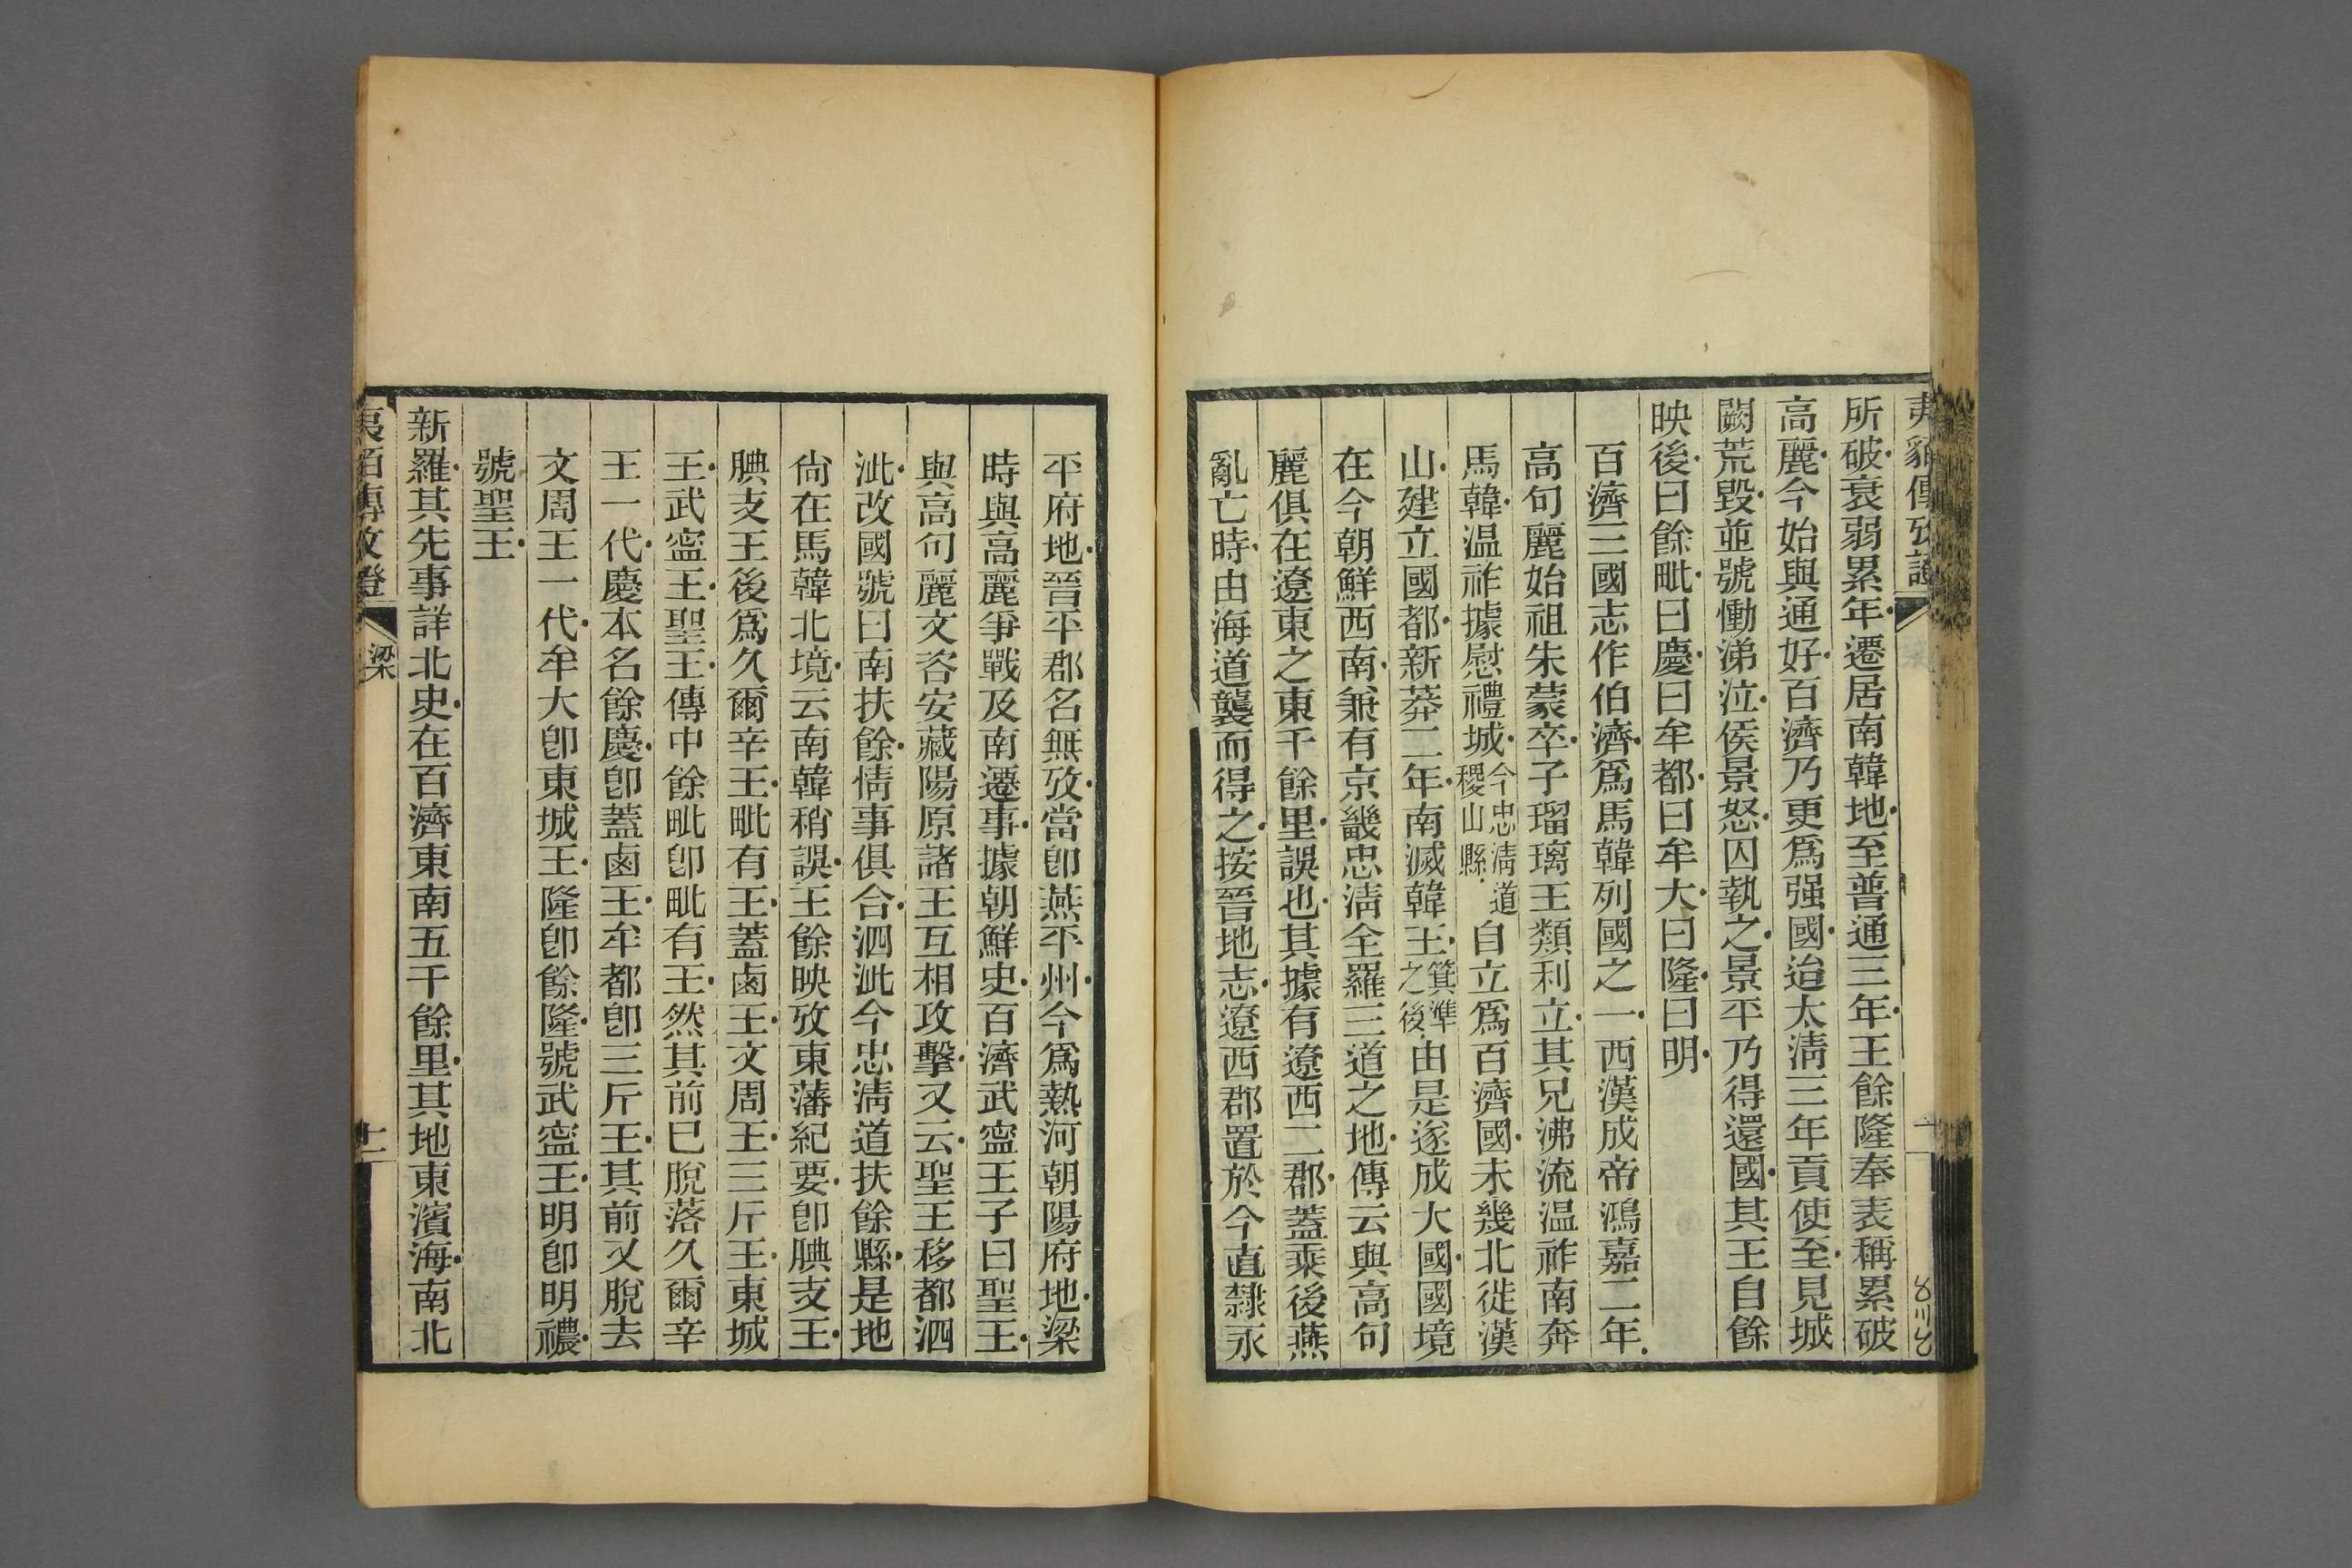 夷貊傳攷證
所破衰弱累年遷居南韓地至普通三年王餘隆奉表稱累破
高麗今始與通好百濟乃更爲强國迨太淸三年貢使至見城
闕荒毀並號慟涕泣侯景怒囚執之景平乃得還國其王自餘
映後曰餘毗曰慶曰牟都曰牟大曰隆曰明
百濟三國志作伯濟爲馬韓列國之一西漢成帝鴻嘉二年
高句麗始祖朱蒙卒子瑠璃王類利立其兄沸流温祚南奔
馬韓温祚據慰禮城今忠淸道稷山縣自立爲百濟國未幾北徙漢
山建立國都新莽二年南滅韓王箕準之後由是遂成大國國境
在今朝鮮西南兼有京畿忠淸全羅三道之地傳云與高句
麗俱在遼東之東千餘里誤也其據有遼西二郡蓋乘後燕
亂亡時由海道襲而得之按晉地志遼西郡置於今直隸永
平府地晉平郡名無攷當卽燕平州今爲熱河朝陽府地梁
時與高麗爭戰及南遷事據朝鮮史百濟武寍王子曰聖王
與高句麗文咨安藏陽原諸王互相攻擊又云聖王移都泗
沘改國號曰南扶餘情事俱合泗沘今忠淸道扶餘縣是地
尙在馬韓北境云南韓稍誤王餘映攷東藩紀要卽腆支王
腆支王後爲久爾辛王毗有王蓋鹵王文周王三斤王東城
王武寍王聖王傳中餘毗卽毗有王然其前已脫落久爾辛
王一代慶本名餘慶卽蓋鹵王牟都卽三斤王其前又脫去
文周王一代牟大卽東城王隆卽餘隆號武寍王明卽明禯
號聖王
新羅其先事詳北史在百濟東南五千餘里其地東濱海南北
夷貊傳攷證
梁
十二